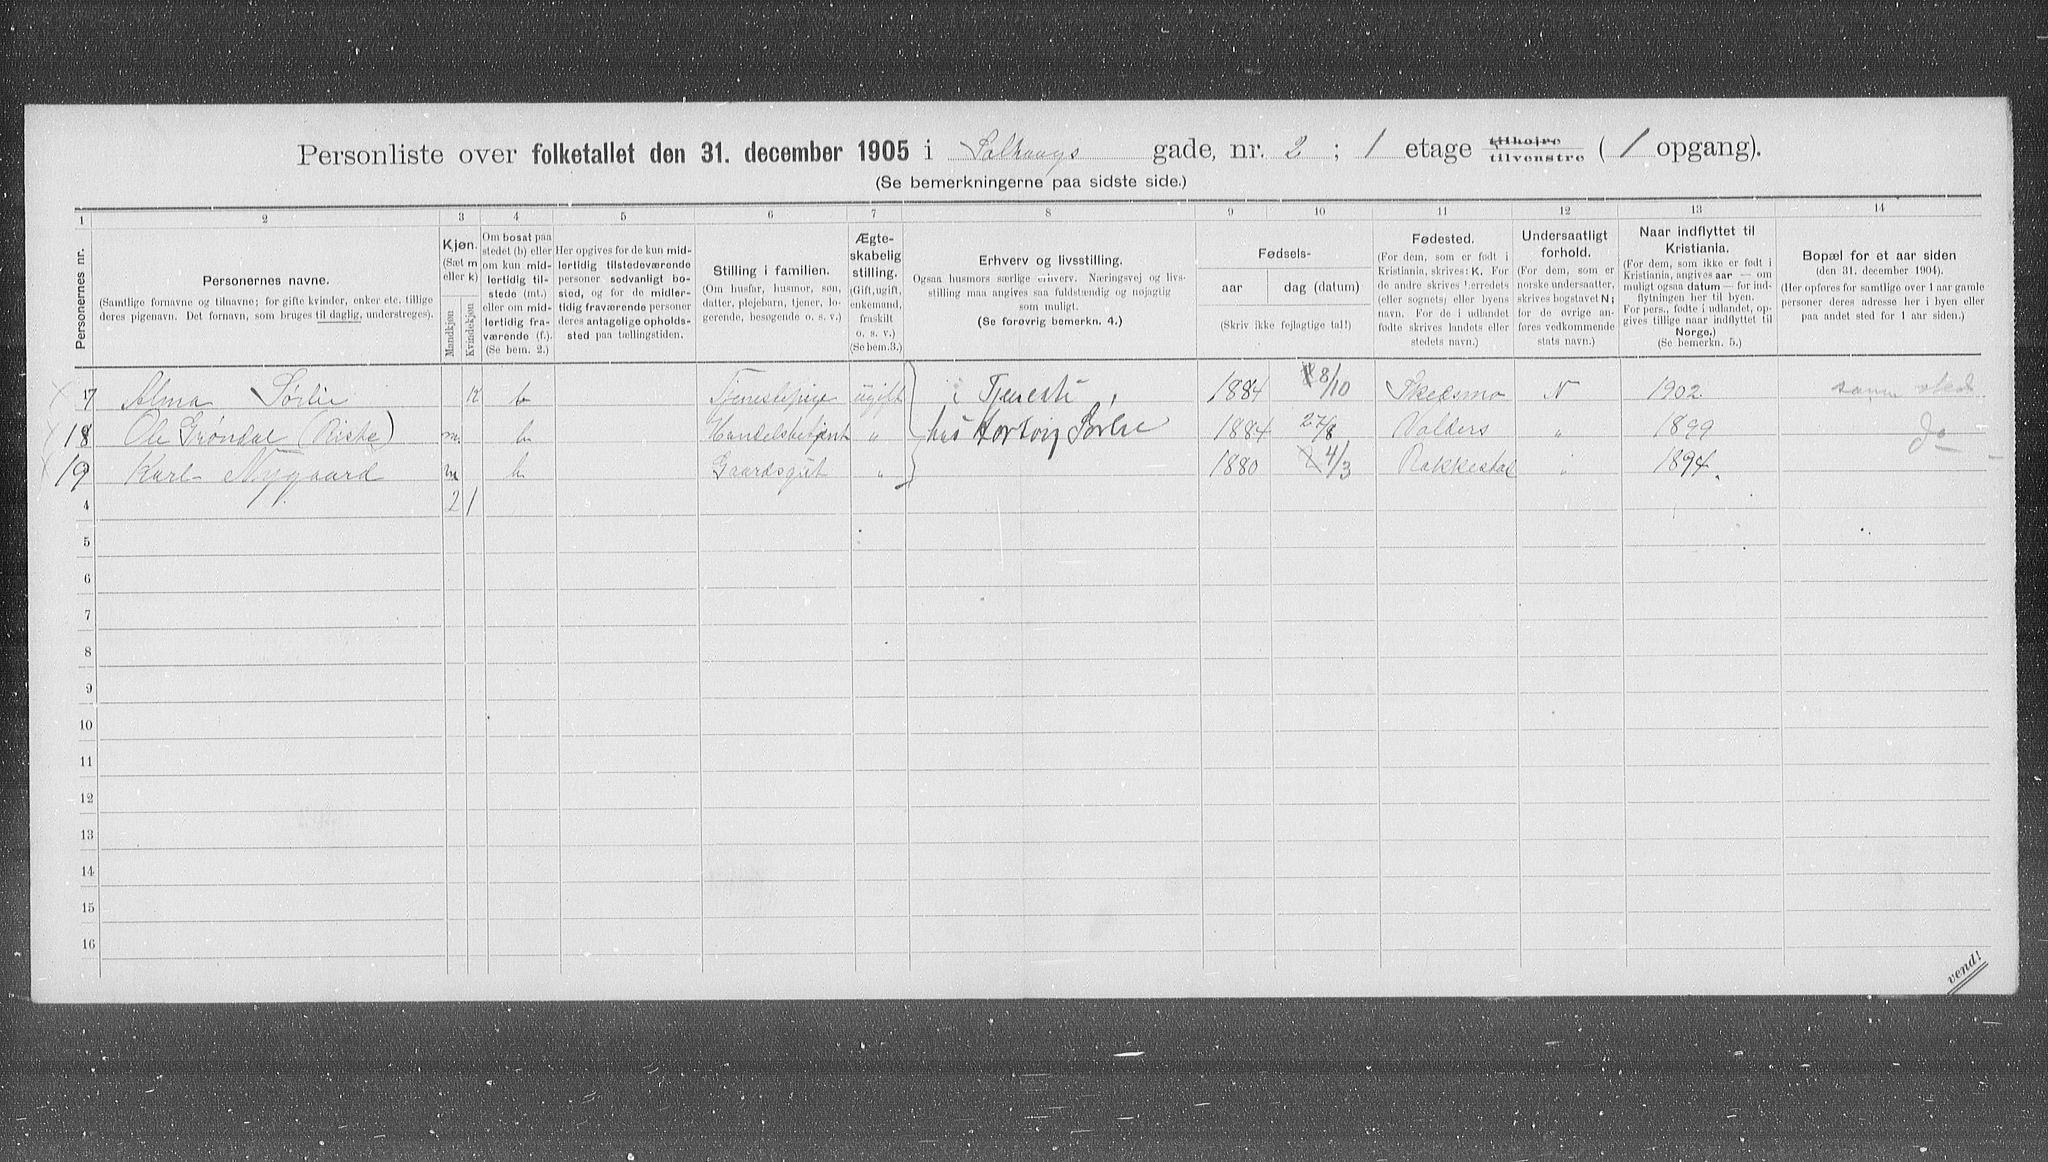 Personliste over folketallet den 31. december 1905 i Solhaugs gade, nr. 2 ; 1 etage tilhøire tilvenstre ( 1 opgang).
(Se bemerkningerne paa sidste side.)
1 2 3 4 5 6 7 8 9 10 11 12 13 14
Personernes nr.
Personernes navne.
(Samtlige fornavne og tilnavne; for gifte kvinder, enker etc. tillige
deres pigenavn. Det fornavn, som bruges til daglig, understreges).
Kjøn.
(Sæt m
eller k)
Mandkjøn
Kvindekjøn
Om bosat paa
stedet (b) eller
om kun mid-
lertidig til-
stede (mt.)
eller om mid-
lertidig fra-
værende (f.).
(Se bem. 2.)
Her opgives for de kun mid-
lertidig tilstedeværende
personer sedvanligt bo-
sted, og for de midler-
tidig fraværende personer
deres antagelige opholds-
sted paa tællingstiden.
Stilling i familien.
(Om husfar, husmor, søn,
datter, plejebarn, tjener, lo-
gerende, besøgende o. s. v.)
Ægte-
skabelig
stilling.
(Gift, ugift,
enkemand,
fraskilt
o. s. v.)
(Se bem.3.)
Erhverv og livsstilling.
Ogsaa husmors særlige erhverv. Næringsvej og livs-
stilling maa angives saa fuldstændig og nøjagtig
som muligt.
(Se forøvrig bemerkn. 4.)
Fødsels-
aar dag (datum)
(Skriv ikke fejlagtige tal!)
Fødested.
(For dem, som er født i
Kristiania, skrives: K. For
de andre skrives herredets
(eller sognets) eller byens
navn. For de i udlandet
fødte skrives landets eller
stedets navn.)
Undersaatligt
forhold.
(For dem, som er
norske undersaatter,
skrives bogstavet N;
for de øvrige an-
føres vedkommende
stats navn.)
Naar indflyttet til
Kristiania.
(For dem, som ikke er født i
Kristiania, angives aar — om
muligt ogsaa datum — for ind-
flytningen her til byen.
For pers., født i udlandet, op-
gives tillige naar indflyttet til
Norge.)
(Se bemerkn. 5.)
Bopæl for et aar siden
(den 31. december 1904).
(Her opføres for samtlige over 1 aar gamle
personer deres adresse her i byen eller
paa andet sted for 1 aar siden.)
7 Alma Sørlie k b Tjenestepige ugift i Tjeneste 1884 8/10 Skedsmo N 1902 samme sted
18 Ole Grøndal (Riste) m b Handelsbetjent " hos Sørlie 1884 27/8 Valders " 1899 do
19 Karl Nygaard m b Gaardsgut " 1880 4/3 Rakkestad " 1894.
4 2 1
5
6
7
8
9
10
11
12
13
14
15
16
vend!